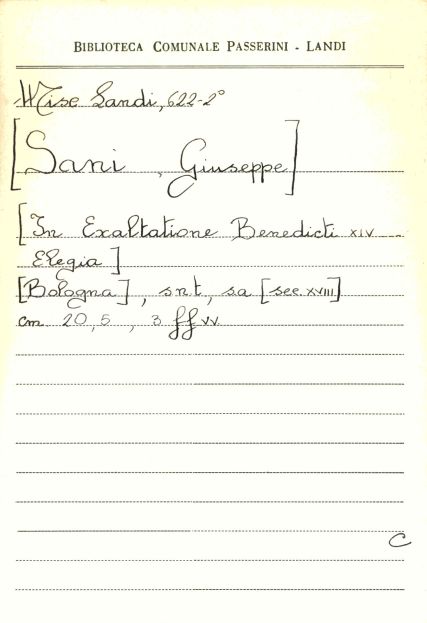 BIBLIOTECA COMUNALE PASSERINI - LANDI
Misc Landi, 622-2°
[Sani, Giuseppe]
[In Exaltatione Benedicti XIV
Elegia]
[Bologna], s.n.t, s.a [sec. XVIII]
cm 20,5, 3 ff vv.
C